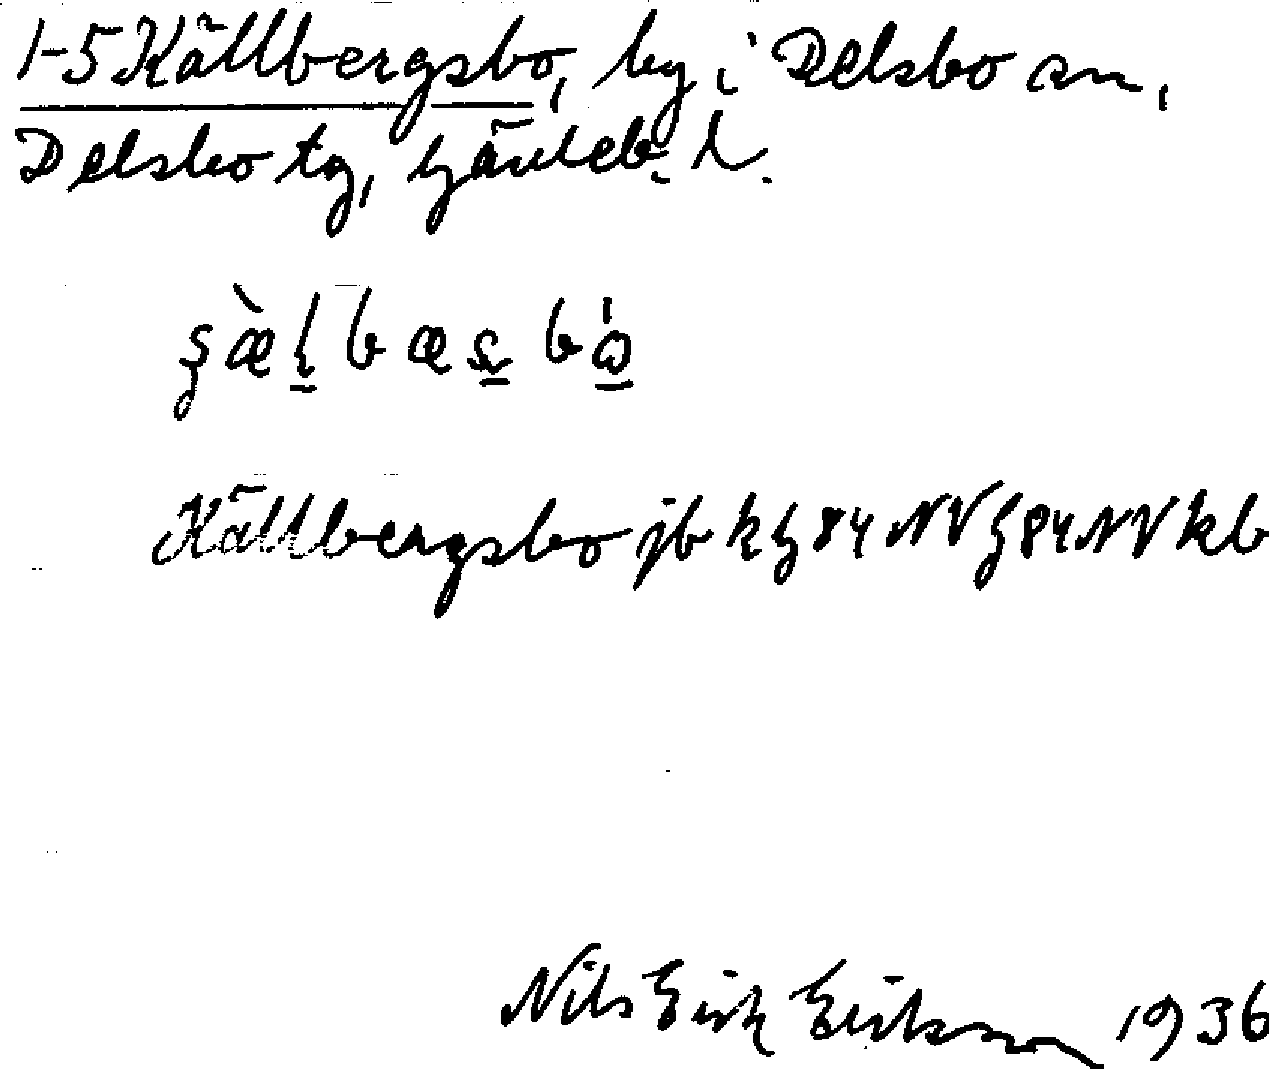 1-5 Källbergsbo, by i Delsbo sn,
Delsbo tg, Gävleb. l.
Källbergsbo jb k g 84 NV g 84 NV kb
Nils Erik Eriksson 1936